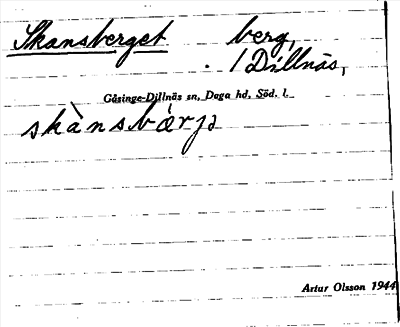 Skansberget berg,
i Dillnäs,
Gåsinge-Dillnäs sn, Daga hd, Söd. l.
skànsbárjə
Artur Olsson 1944